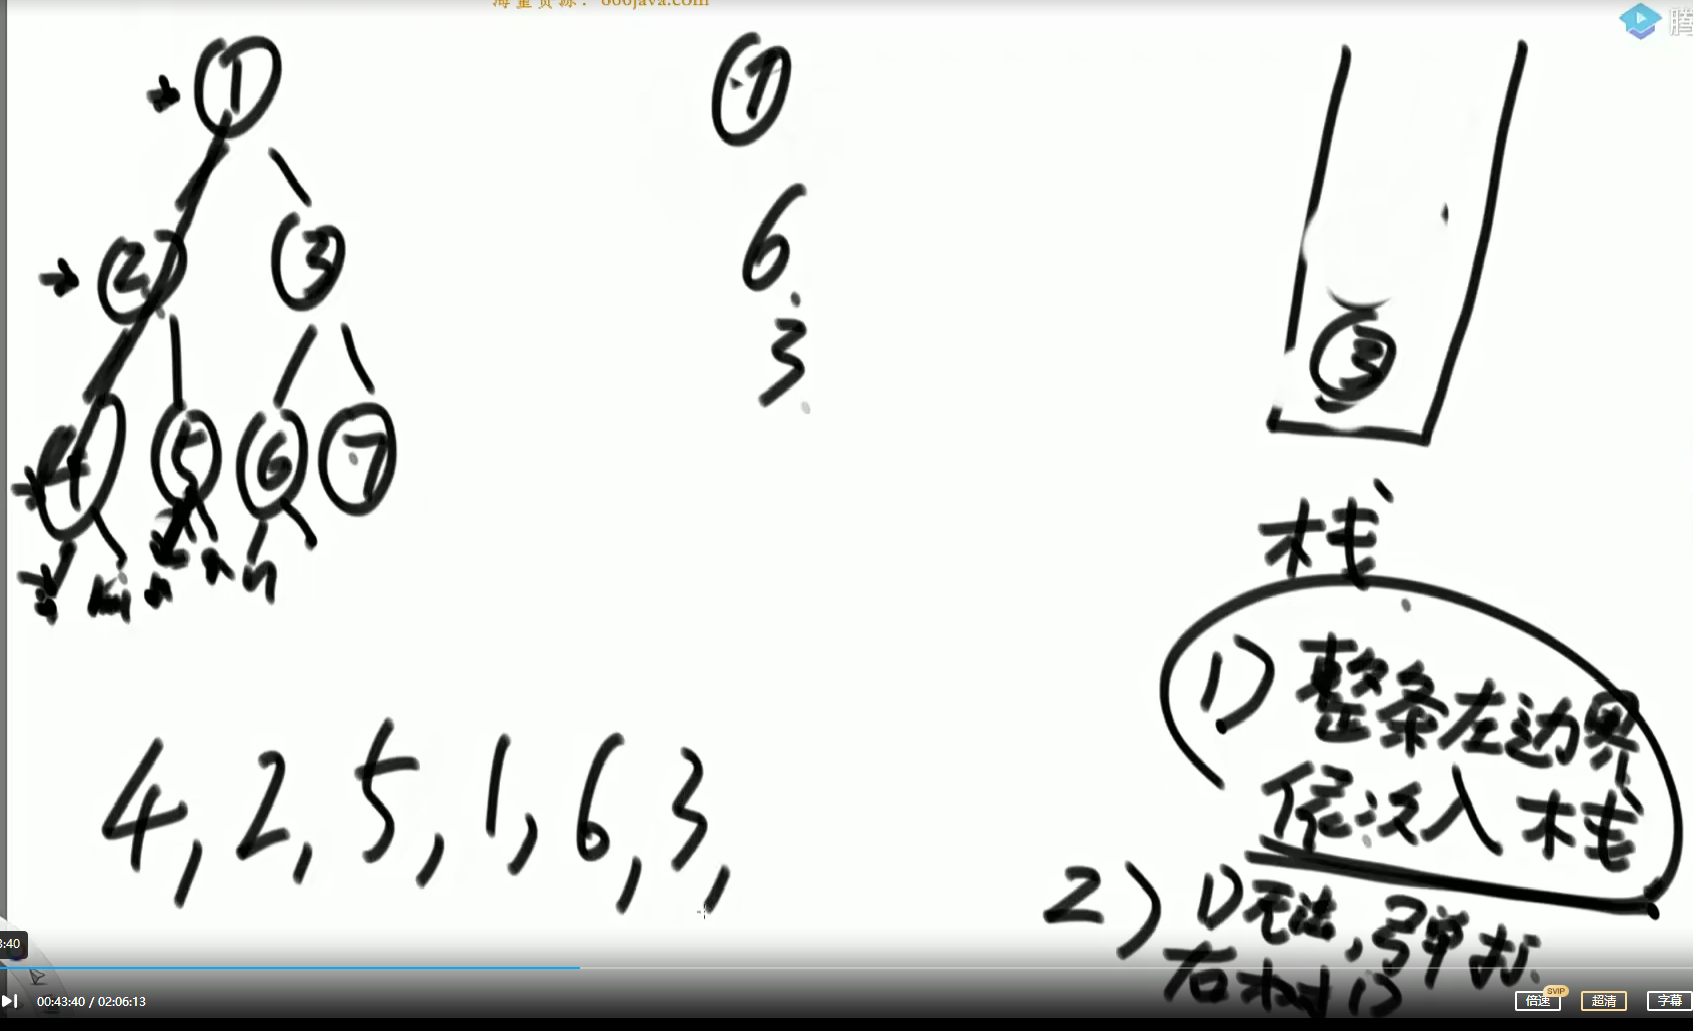 海量资源：666java.com
腾
1
2
3
4
5
6
7
n
n
n
7
6
3
3
栈
1) 整条左边界
依次入栈
2) 1)无法,弹打
右树1)
4, 2, 5, 1, 6, 3,
3:40
00:43:40 / 02:06:13
倍速
SVIP
超清
字幕